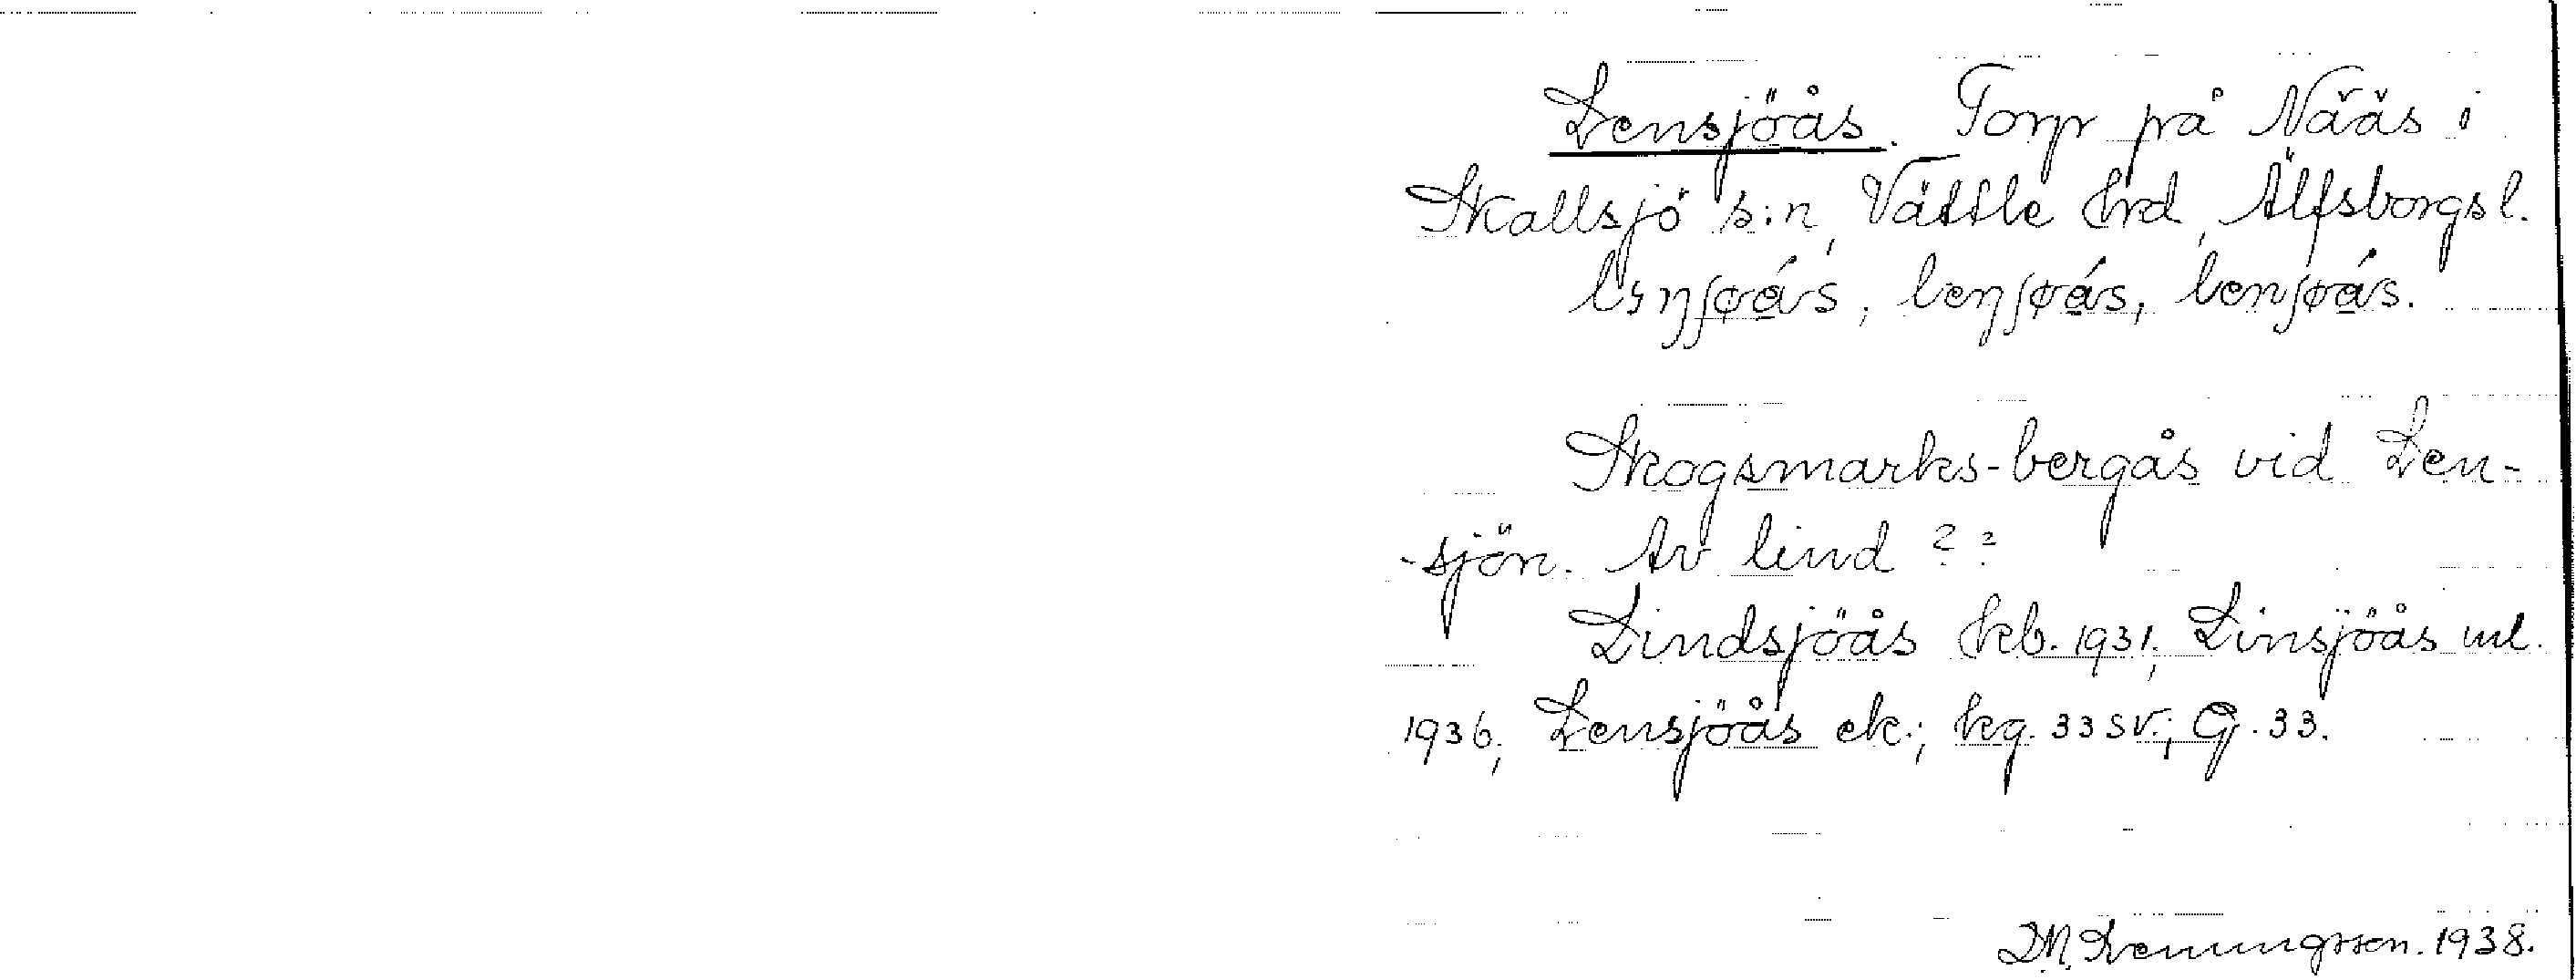 Lensjöås. Torp på Nääs i
Skallsjö s:n, Vättle hrd, Älfsborgs l.
lenʃøás, lenʃøás.
Skogsmarks-bergås vid Len-
-sjön. Av lind ??
Lindsjöås kb. 1931, Linsjöås ml.
1936, Lensjöås ek.; kg. 33 SV.; G. 33.
1938.